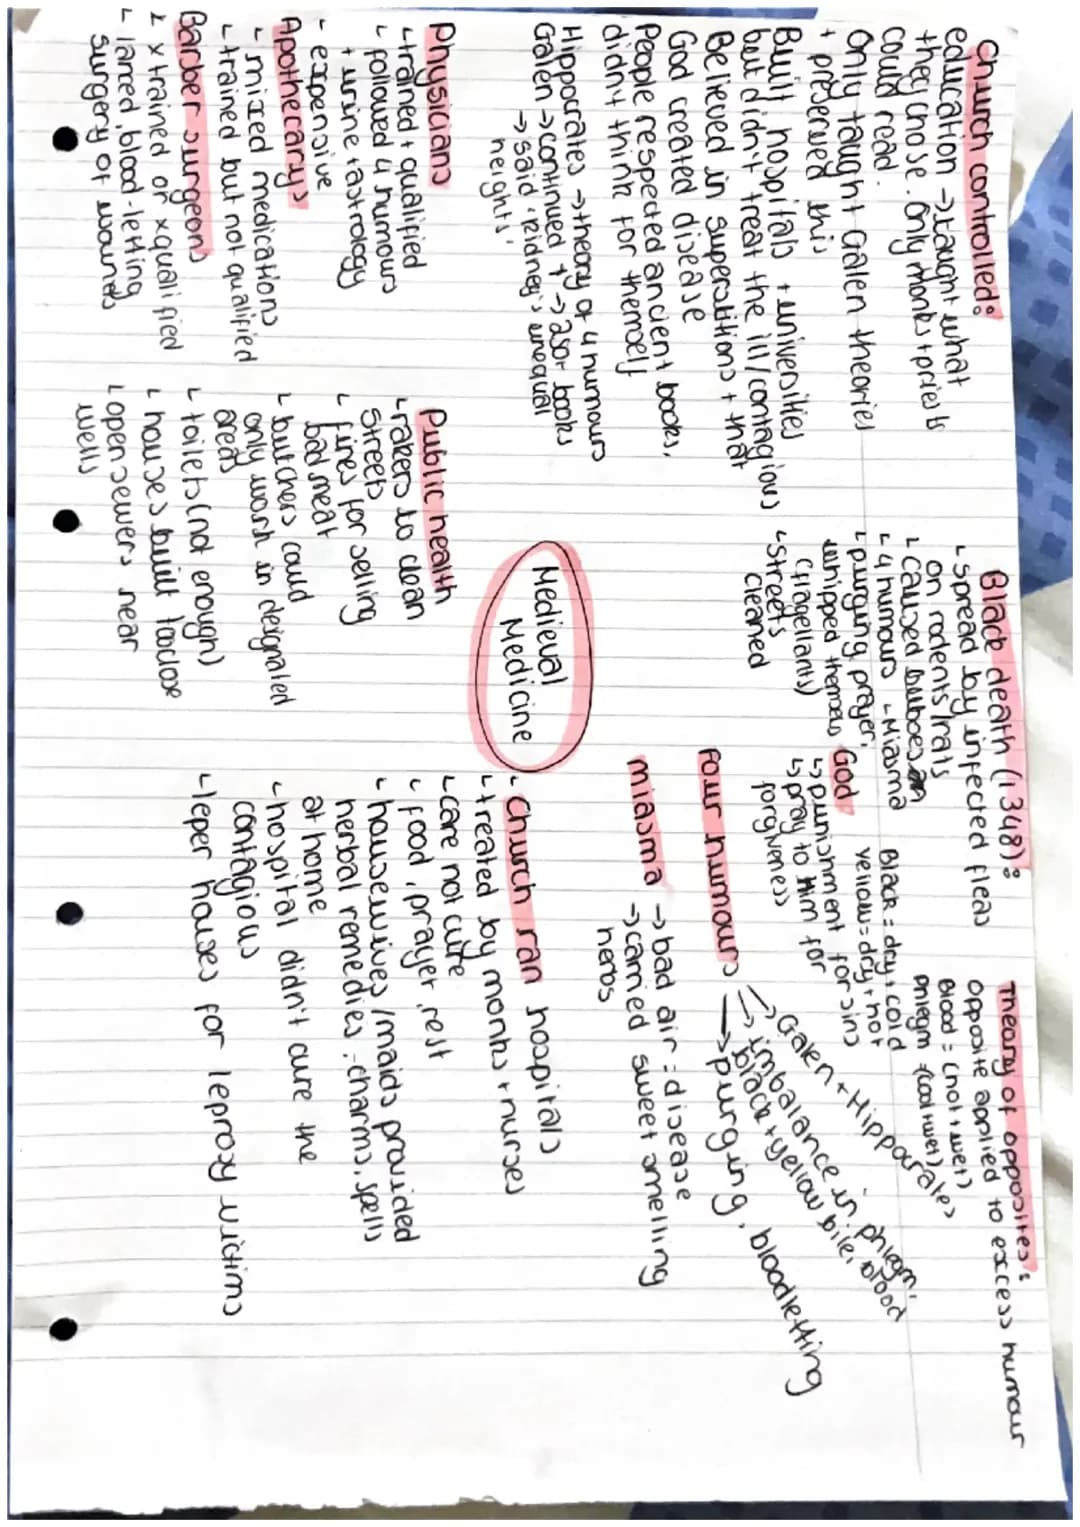 Church controlled:
education → taught what
they chose. Only monks + priests
could read.
Only taught Galen theories
+ preserved this
Built hospitals + universities
but didn't treat the ill/contagious
Believed in superstitions + that
God created disease
People respected ancient books,
didn't think for themself
Hippocrates → theory of 4 humours
Galen → continued + → 250+ books
→ said 'kidney's unequal
heights'
Black death (1348):
spread by infected fleas
on rodents/rats
caused buboes
4 humours - Miasma
purging, prayer,
whipped themselves
(flagellants)
streets
cleaned
Theory of opposites:
opposite applied to excess humour
Blood = (hot + wet)
phlegm (cool + wet)
Black = dry + cold
yellow = dry + hot
God
↳ punishment for sins
↳ pray to Him for
forgiveness
Four humours → Galen + Hippocrates
→ imbalance in: phlegm,
black + yellow bile, blood
→ purging, bloodletting
miasma → bad air = disease
→ carried sweet smelling
herbs
Medieval
Medicine
Physicians
trained + qualified
followed 4 humours
+ urine + astrology
- expensive
Apothecarys
- mixed medications
trained but not qualified
Barber surgeons
x trained or x qualified
lanced, blood-letting
surgery of wounds
Public health
rakers to clean
streets
fines for selling
bad meat
butchers could
only wash in designated
areas
toilets (not enough)
houses built too close
open sewers near
wells
Church ran hospitals
treated by monks + nurses
care not cure
food, prayer, rest
housewives/maids provided
herbal remedies, charms, spells
at home
hospital didn't cure the
contagious
leper houses for leprosy victims